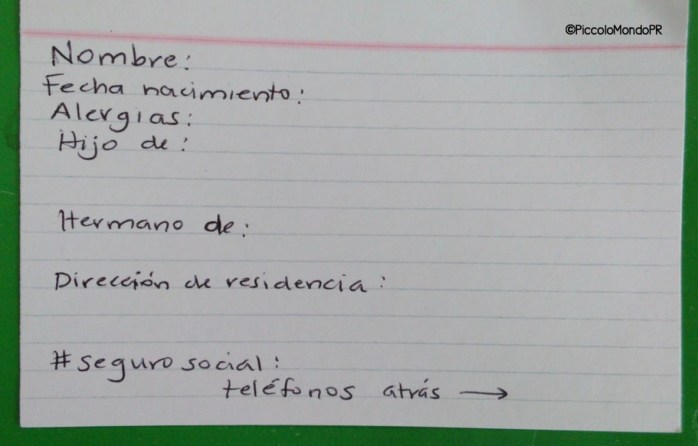 ©PiccoloMondoPR
Nombre:
Fecha nacimiento:
Alergias:
Hijo de:
Hermano de:
Dirección de residencia:
# seguro social:
teléfonos atrás →